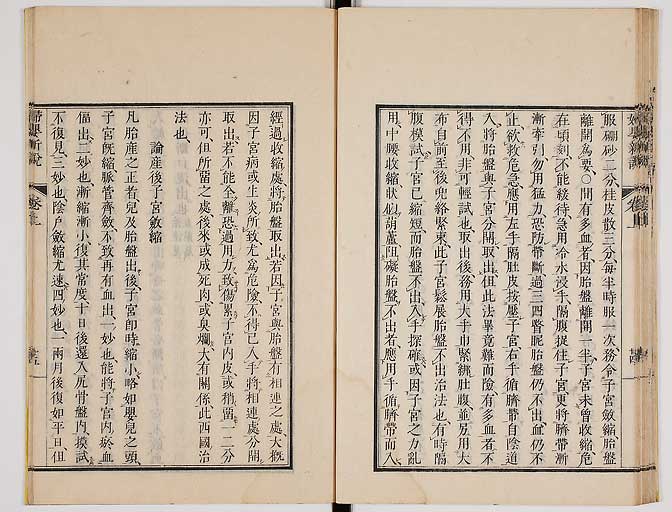 服硼砂二分桂皮散三分每半時服一次務令子宮斂縮胎盤
離開為要○間有多血者因胎盤離開一半子宮未曾收縮危
在頃刻不能緩待急用冷水浸手隔腹捉住子宮更將臍帶漸
漸牽引勿用猛力恐防帶斷過三四瞥眤胎盤仍不出血仍不
止欲救危急應用左手隔肚皮按壓子宮右手循臍帶自陰道
入將胎盤與子宮分開取出但此法畢竟難而險有多血者不
得不用非可輕試也取出後務用大手巾緊綁肚腹並另用大
布自前至後兜絡緊束此子宮鬆展胎盤不出治法也有時隔
腹模試子宮已縮短而胎盤不出入手探確或因子宮之力亂
用中腰收縮狀似葫蘆阻礙胎盤不出者應用手循臍帶而入
經過收縮處將胎盤取出若因子宮與胎盤有相連之處大概
因子宮病或生炎所致尤為危險不得已入手將相連處分開
取出若不能全離恐過用力致傷累子宮內皮或稍留一二分
亦可但所留之處後來或成死肉或臭爛大有關係此西國治
法也
論產後子宮斂縮
凡胎產之正者兒及胎盤出後子宮即時縮小略如嬰兒之頭
子宮既縮脈管齊斂不致再有血出一妙也能將子宮內瘀血
偪出二妙也漸縮漸小復其常度十日後還入尻骨盤內摸試
不復見三妙也陰戶斂縮尤速四妙也一兩月後復如平日但
婦嬰新說